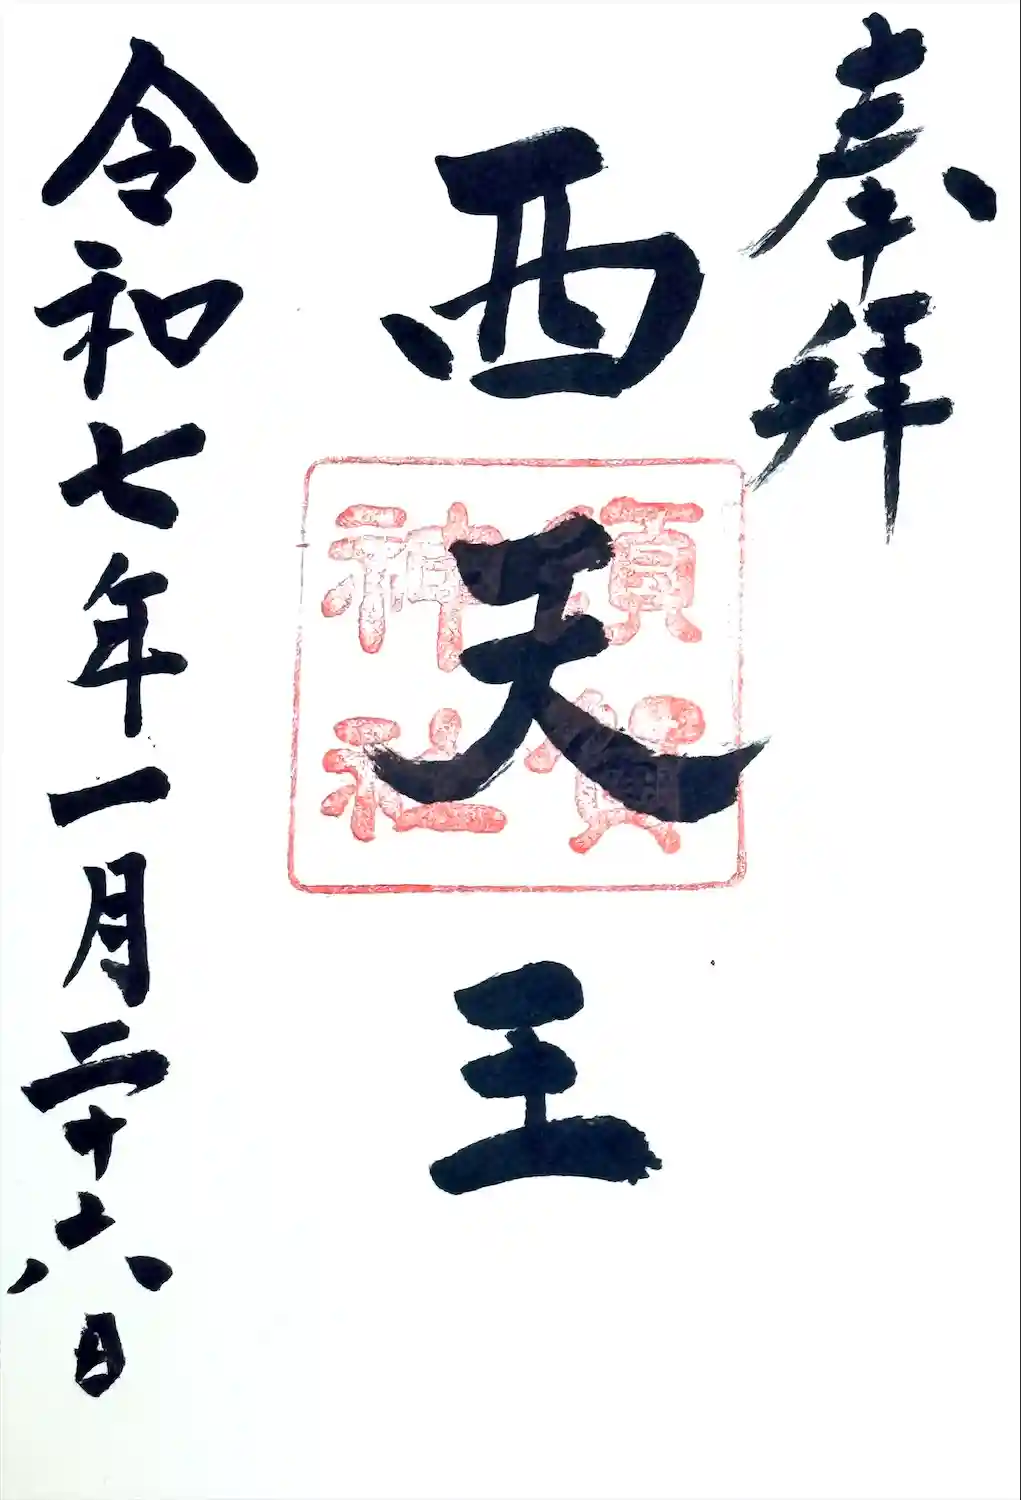 奉拝
西天王
須賀
神社
令和七年一月二十六日